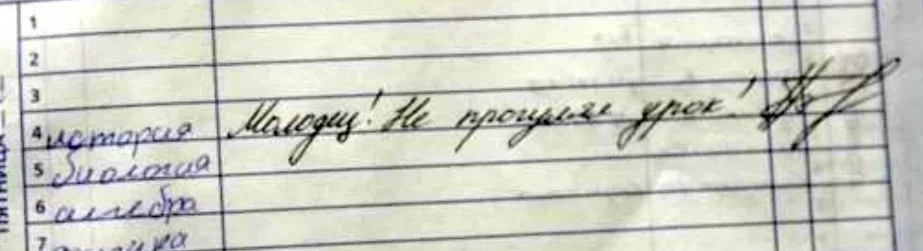 ПЯТНИЦА
1
2
3
4 история Молодец! Не прогулял урок!
5 биология
6 алгебра
7